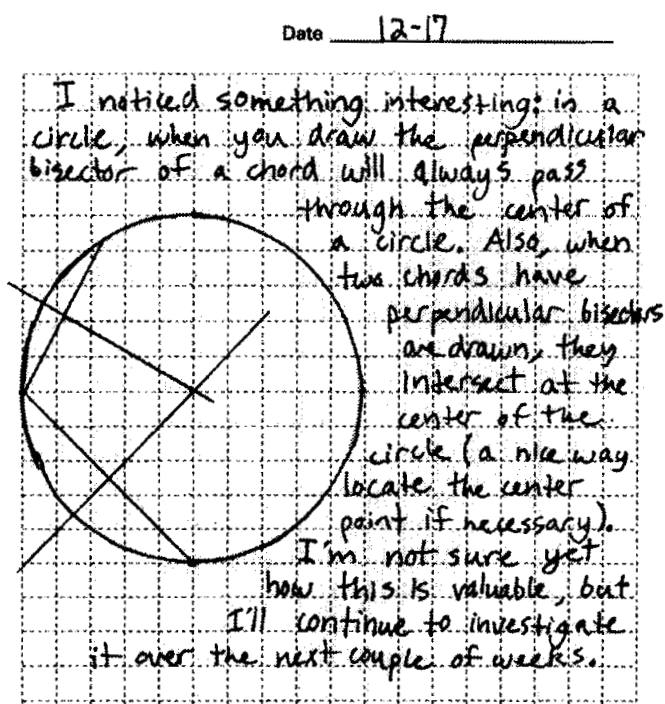 Date 12-17
I noticed something interesting: in a
circle, when you draw the perpendicular
bisector of a chord will always pass
through the center of
a circle. Also, when
two chords have
perpendicular bisectors
are drawn, they
intersect at the
center of the
circle (a nice way
locate the center
point if necessary).
I'm not sure yet
how this is valuable, but
I'll continue to investigate
it over the next couple of weeks.